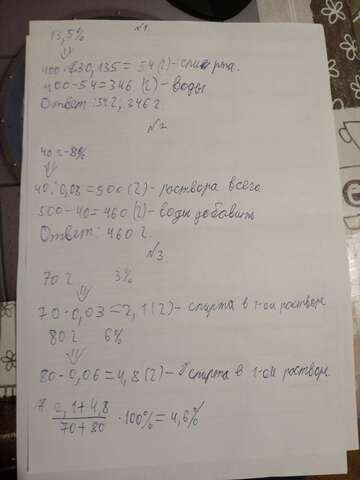 13,5%
№1
400·0,135=54(г)-спирта.
400-54=346(г)-воды
Ответ: 54г, 346г.
№2
40г-8%
40:0,08=500(г)-раствора всего
500-40=460(г)-воды добавить
Ответ: 460г.
№3
70г 3%
70·0,03=2,1(г)-спирта в 1-ом растворе
80г 6%
80·0,06=4,8(г)-спирта в 1-ом растворе
2,1+4,8
70+80 ·100%=4,6%